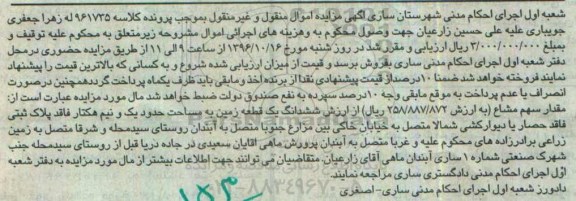 شعبه اول اجرای احکام مدنی شهرستان ساری آگهی مزایده اموال منقول و غیرمنقول بموجب پرونده کلاسه ۹۶۱۷۳۵ له زهرا جعفری
جویباری علیه علی حسین زارعیان جهت وصول محکوم به وهزینه های اجرائی اموال مشروحه زیرمتعلق به محکوم علیه توقیف و
بمبلغ ۳/۰۰۰/۰۰۰/۰۰۰ ریال ارزیابی و مقرر شد در روز شنبه مورخ ۱۳۹۶/۱۰/۱۶ از ساعت ۹ الی ۱۱ از طریق مزایده حضوری درمحل
دفتر شعبه اول اجرای احکام مدنی ساری بفروش برسد و قیمت از میزان ارزیابی شده شروع و به کسانی که بالاترین قیمت را پیشنهاد
نمایند فروخته خواهد شد ضمنا ۱۰درصداز قیمت پیشنهادی نقدا از برنده اخذ و مابقی باید ظرف یکماه پرداخت گرددهمچنین درصورت
انصراف یا عدم پرداخت به موقع مابقی وجه ۱۰درصد سپرده به نفع صندوق دولت ضبط خواهد شد مال مورد مزایده عبارت است از:
مقدار سهم مشاع (به ارزش ۲۵۷/۸۸۷/۸۷۲ ریال) از ارزش ششدانگ یک قطعه زمین به مساحت حدود یک و نیم هکتار فاقد پلاک ثبتی
فاقد حصار یا دیوارکشی شمالا متصل به خیابان خاکی بین مزارع جنوبا متصل به آبندان روستای سیدمحله و شرقا متصل به زمین
زراعی برادرزاده های محکوم علیه و غربا متصل به آبندان پرورش ماهی آقایان سعیدی در جاده دریا قبل از روستای سیدمحله جنب
شهرک صنعتی شماره ۱ ساری آبندان ماهی آقای زارعیان. متقاضیان می توانند جهت اطلاعات بیشتر از مال مورد مزایده به دفتر شعبه
اول اجرای احکام مدنی دادگستری ساری مراجعه نمایند.
دادورز شعبه اول اجرای احکام مدنی ساری-اصغری